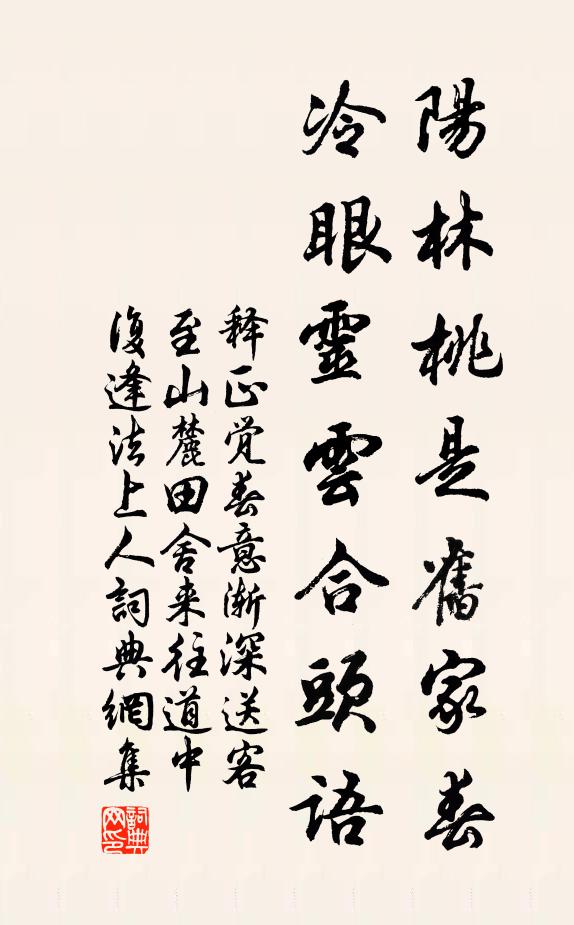 陽林桃是舊家春
冷眼靈雲合頭語
释正觉春意渐深送客
至山麓田舍来往道中
復逢法上人詞典網集
詞典網印